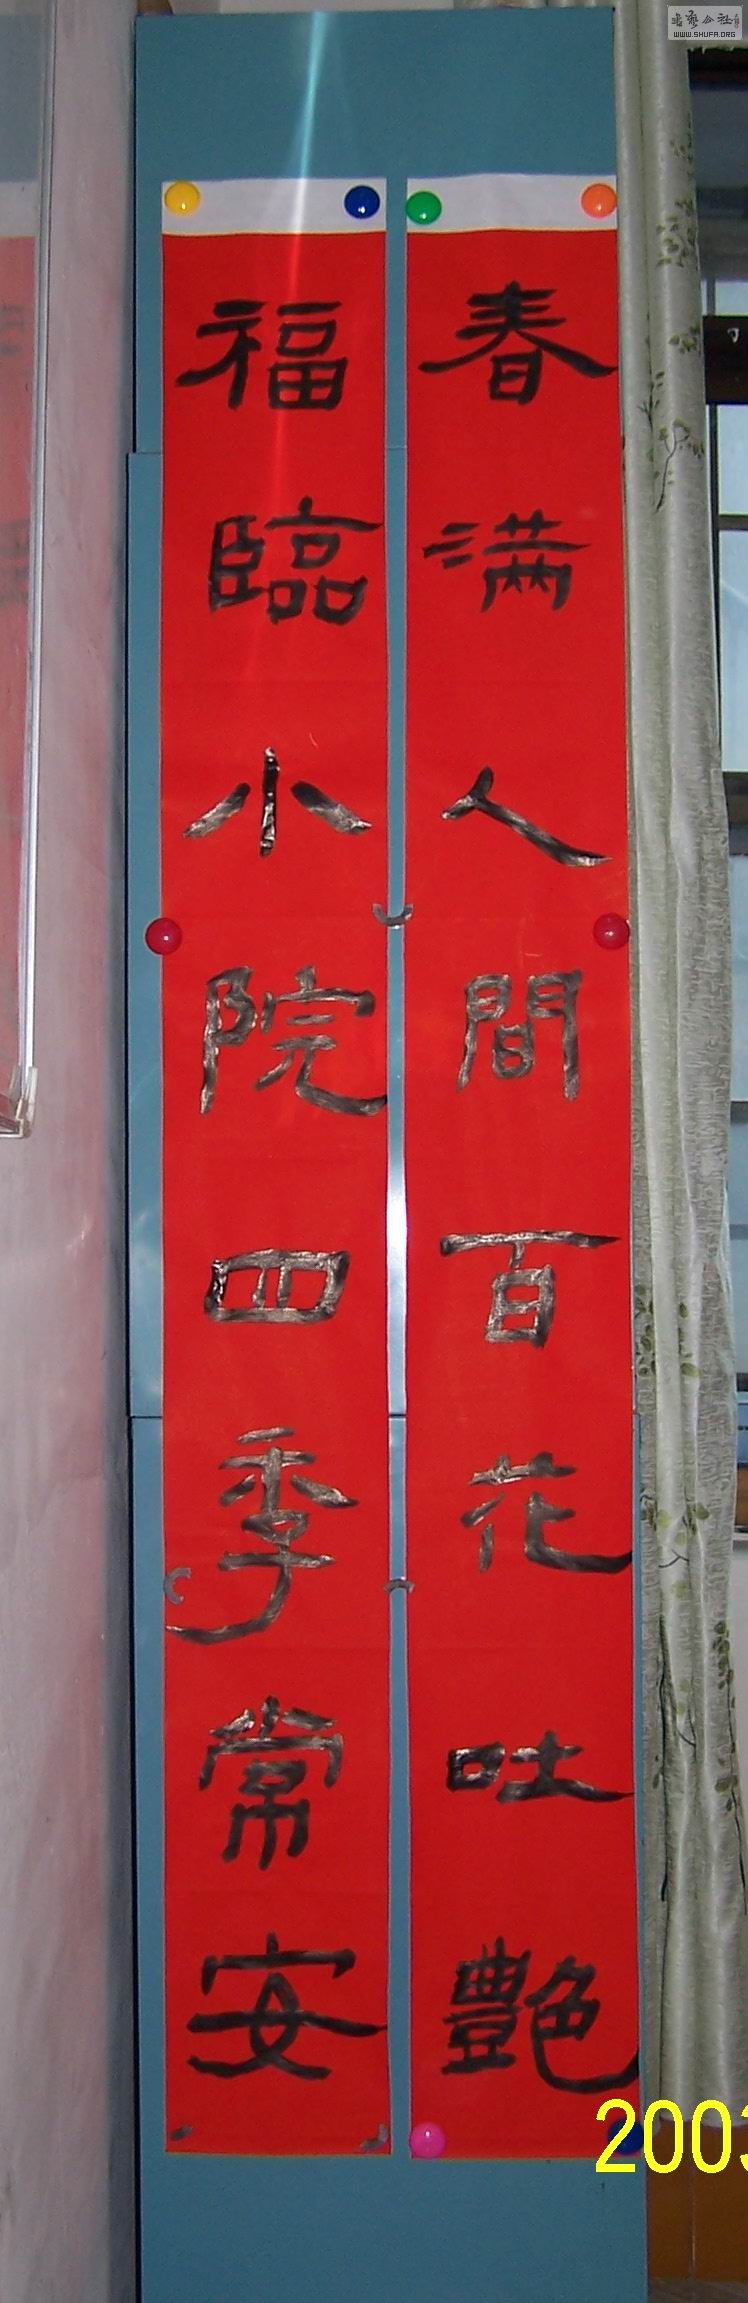 春满人間百花吐艷
福臨小院四季常安
书艺公社
WWW.SHUFA.ORG
2003